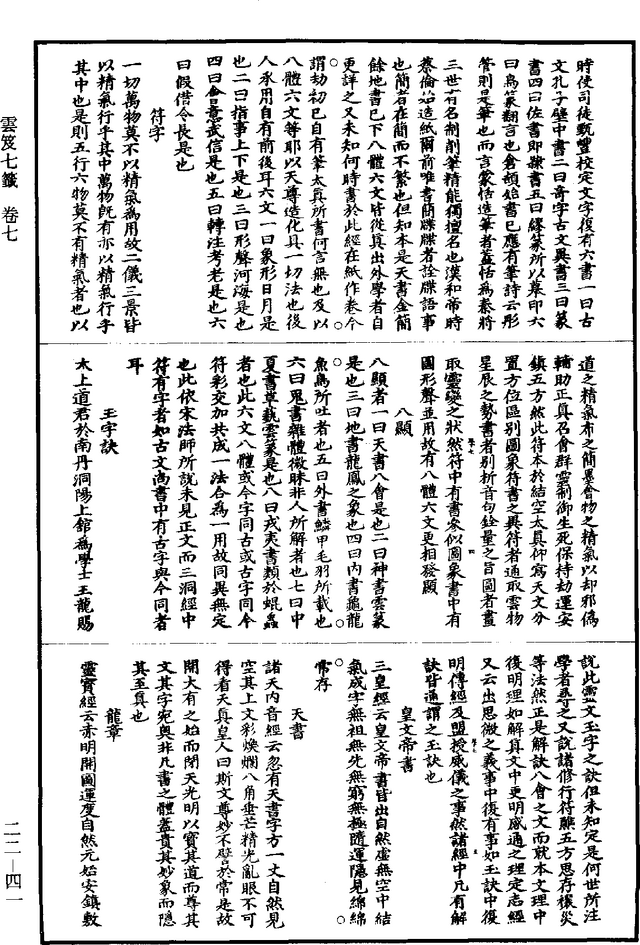 雲笈七籤 卷七
二二—四一
時使司徒甄豐校定文字復有六書一曰古
文孔子壁中書二曰奇字古文異書三曰篆
書四曰佐書即隸書五曰繆篆所以摹印六
曰鳥篆翻言也倉頡始書已應有筆詩云彤
管則是筆也而言蒙恬造筆者蓋恬爲秦將
三世有名制削筆精能獨擅名也漢和帝時
蔡倫始造紙爾前唯書簡牒牒者詮牒語事
也簡者在簡而不繁也但知本是天書金簡
餘地書已下八體六文皆從真出外學者自
更詳之又未知何時書於此經在紙作卷今
謂劫初已自有筆太真所書何言無也及以
八體六文等耶以天尊造化具一切法也後
人承用自有前後耳六文一曰象形日月是
也二曰指事上下是也三曰形聲河海是也
四曰會意武信是也五曰轉注考老是也六
曰假借令長是也
符字
一切萬物莫不以精氣爲用故二儀三景皆
以精氣行乎其中萬物既有亦以精氣行乎
其中也是則五行六物莫不有精氣者也以
道之精氣布之簡墨會物之精氣以却邪僞
輔助正真召會群靈制御生死保持劫運安
鎮五方然此符本於結空太真仰寫天文分
置方位區别圖象符書之異符者通取雲物
星辰之勢書者別析音句銓量之旨圖者畫
取靈變之狀然符中有書參似圖象書中有
圖形聲並用故有八體六文更相發顯
八顯
八顯者一曰天書八會是也二曰神書雲篆
是也三曰地書龍鳳之象也四曰內書龜龍
魚鳥所吐者也五曰外書鱗甲毛羽所載也
六曰鬼書雜體微昧非人所解者也七曰中
夏書草藝雲篆是也八曰戎夷書類於蜫蟲
者也此六文八體或今字同古或古字同今
符彩交加共成一法合爲一用故同異無定
也此依宋法師所說未見正文而三洞經中
符有字者如古文尚書中有古字與今同者
耳
玉字訣
太上道君於南丹洞陽上舘爲學士王龍賜
說此靈文玉字之訣但未知定是何世所注
學者尋之又說諸修行符醮五方思存禳災
等法然正是解訣八會之文而就本文理中
復明理如解真文中更明感通之理定志經
又云出思微之義事中復有事如玉訣中復
明傳經及盟授威儀之事然諸經中凡有解
訣皆通謂之玉訣也
皇文帝書
三皇經云皇文帝書皆出自然虛無空中結
氣成字無祖無先無窮無極隨運隱見綿綿
常存
天書
諸天內音經云忽有天書字方一丈自然見
空其上文彩煥爛八角垂芒精光亂眼不可
得看天真皇人曰斯文尊妙不譬於常是故
開大有之始而閉天光明以寶其道而尊其
文其字宛奧非凡書之體蓋貴其妙象而隱
其至真也
龍章
靈寶經云赤明開圖運度自然元始安鎮敷